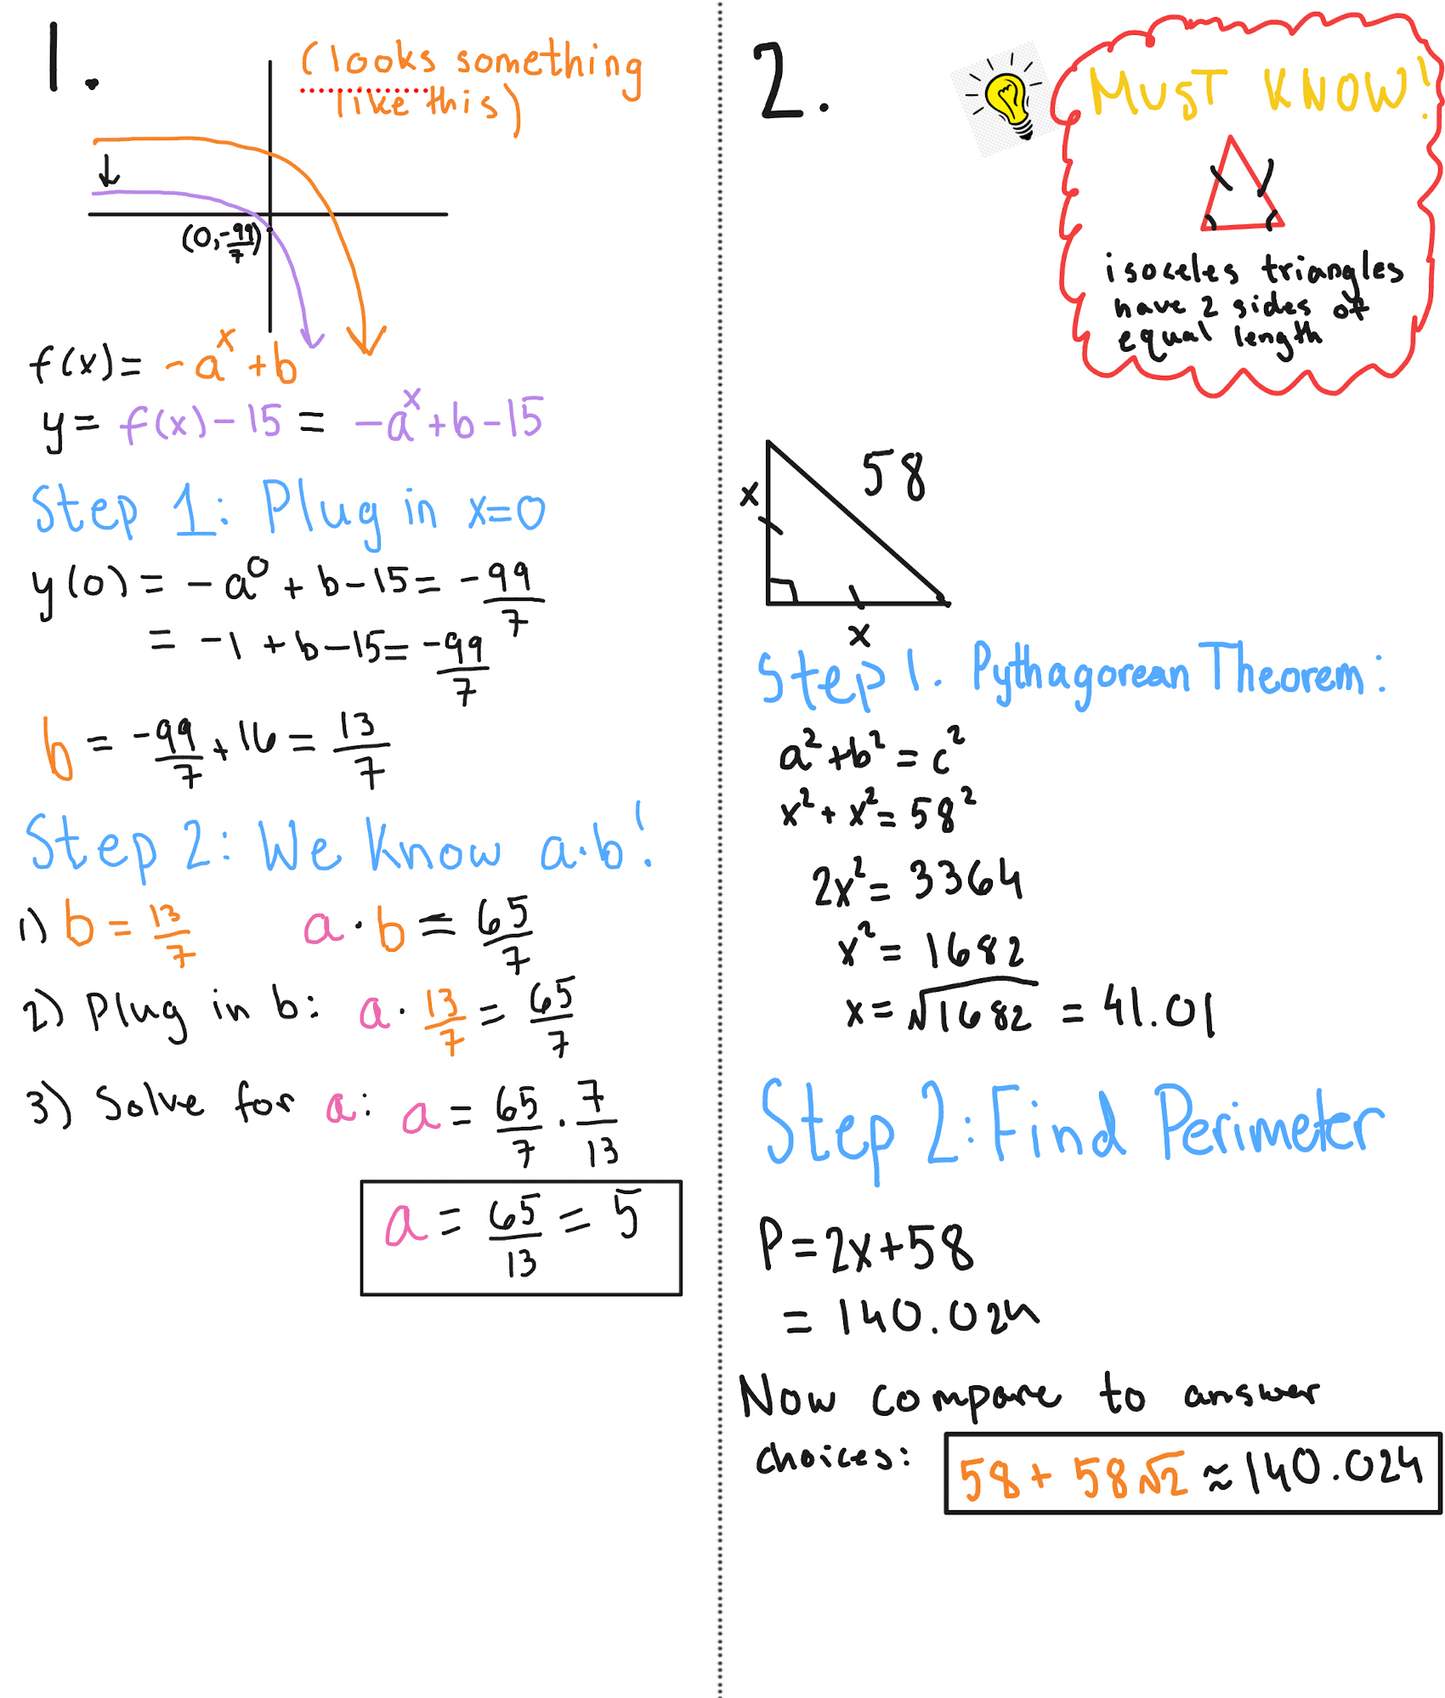 1.
(looks something
like this)
(0,-99/7)
f(x)= -a^x +b
y= f(x)-15 = -a^x+b-15
Step 1: Plug in x=0
y(0) = -a^0 + b-15= -99/7
= -1 +b-15= -99/7
b = -99/7 +16 = 13/7
Step 2: We Know a·b!
1) b = 13/7 a·b = 65/7
2) Plug in b: a· 13/7 = 65/7
3) Solve for a: a = 65/7 · 7/13
a = 65/13 = 5
2.
MUST KNOW!
isoceles triangles
have 2 sides of
equal length
58
x
x
Step 1. Pythagorean Theorem:
a²+b² = c²
x²+ x²= 58²
2x²= 3364
x²= 1682
x= √1682 = 41.01
Step 2: Find Perimeter
P=2x+58
= 140.024
Now compare to answer
choices: 58+ 58√2 ≈ 140.024